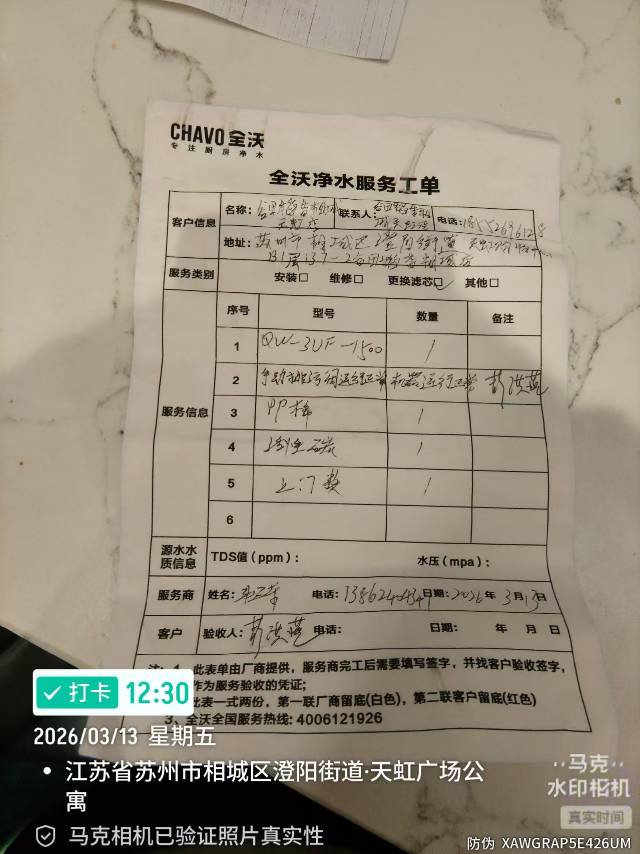 CHAVO 全沃
专注厨房净水
全沃净水服务工单
客户信息
名称：
天虹店
联系人：
电话：
地址：苏州市相城区澄阳街道
B1层
服务类别 安装□ 维修□ 更换滤芯☑ 其他□
服务信息
序号 型号 数量 备注
1 QW-3UF-1500 1
2 手动排污阀运行正常 机器运行正常 彭洪燕
3 PP棉 1
4 活性碳 1
5 上门费 1
6
源水水质信息 TDS值（ppm）： 水压（mpa）：
服务商 姓名： 电话： 日期：2026年3月13日
客户 验收人：彭洪燕 电话： 日期： 年 月 日
注：1、此表单由厂商提供，服务商完工后需要填写签字，并找客户验收签字，
作为服务验收的凭证；
此表一式两份，第一联厂商留底(白色)，第二联客户留底(红色)
3、全沃全国服务热线：4006121926
打卡 12:30
2026/03/13 星期五
江苏省苏州市相城区澄阳街道·天虹广场公
寓
马克相机已验证照片真实性
马克
水印相机
真实时间
防伪 XAWGRAP5E426UM